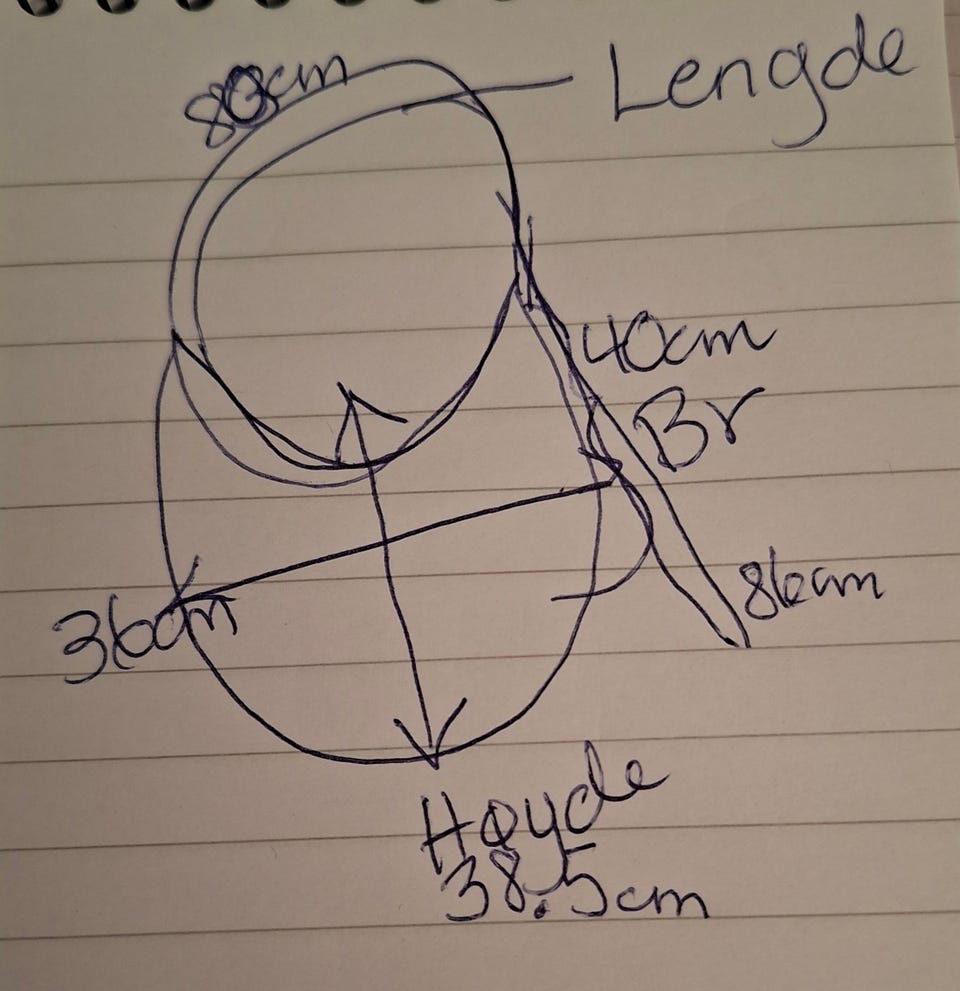 80cm
Lengde
40cm
Br
86cm
36cm
Høyde
38.5cm